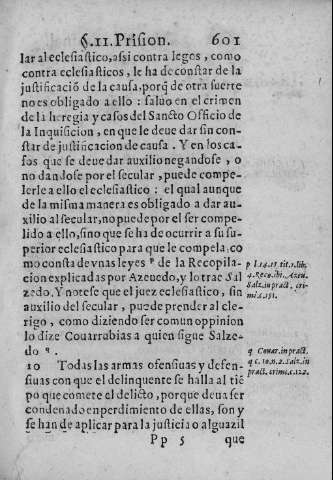 §.11. Prision. 601
lar al eclesiastico, assi contra legos, como
contra eclesiasticos, le ha de constar de la
justificaciõ de la causa, porq̃ de otra suerte
no es obligado a ello : saluo en el crimen
de la heregia y casos del Sancto Officio de
la Inquisicion, en que le deue dar sin con-
star de justificacion de causa. Y en los ca-
sos que se deue dar auxilio negandose, o
no dandose por el secular, puede compe-
lerle a ello el eclesiastico : el qual aunque
de la misma manera es obligado a dar au-
xilio al secular, no puede por el ser compe-
lido a ello, sino que se ha de ocurrir a su su-
perior eclesiastico para que le compela, co
mo consta de vnas leyes p de la Recopila-
cion explicadas por Azeuedo, y lo trae Sal
zedo. Y notese que el juez eclesiastico, sin
auxilio del secular, puede prender al cle-
rigo, como diziendo ser comun oppinion
lo dize Couarrubias a quien sigue Salze-
do q.
10 Todas las armas ofensiuas y defen-
siuas con que el delinquente se halla al tiẽ
po que comete el delicto, porque deua ser
condenado en perdimiento de ellas, son y
se han de aplicar para la justicia o alguazil
Pp 5 que
p l.14.15.tit.1.lib.
4.Reco.ibi.Azeu.
Salz.in pract. cri-
mi.c.151.
q Couar.in pract.
q c.10.n.2.Salz.in
pract.crimi.c.122.